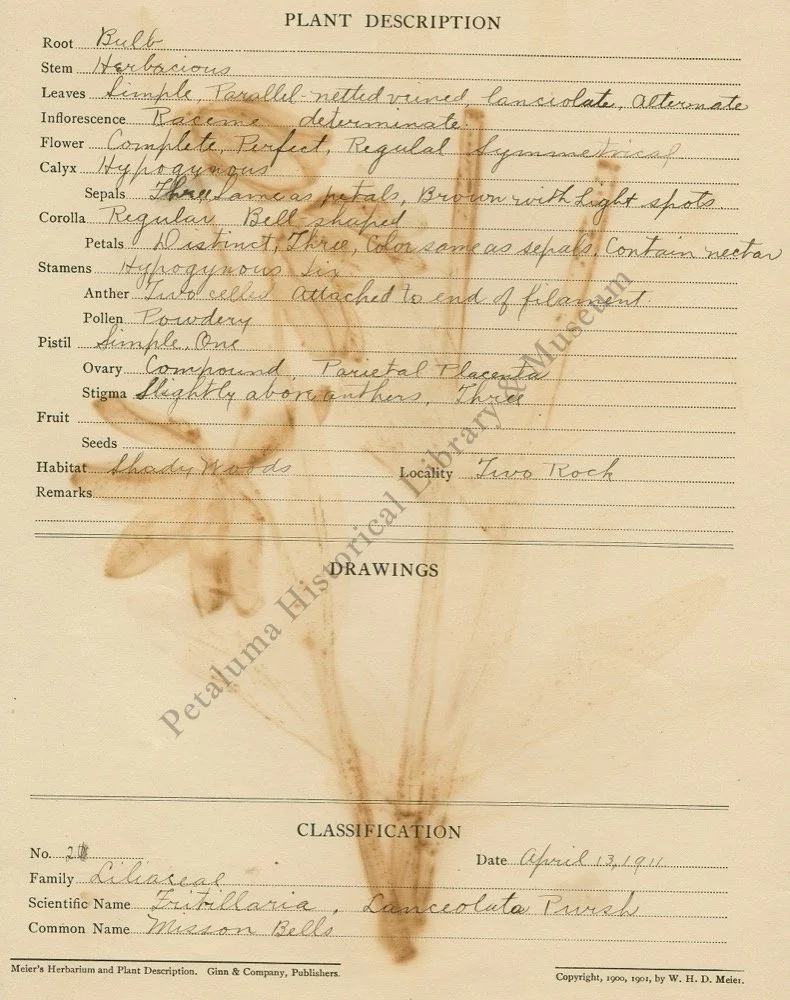 PLANT DESCRIPTION
Root Bulb
Stem Herbacious
Leaves Simple, Parallel-netted veined, lanciolate, Alternate
Inflorescence Raceme determinate.
Flower Complete, Perfect, Regular Symmetrical
Calyx Hypogynous
Sepals Three Same as petals, Brown with Light spots.
Corolla Regular, Bell-shaped
Petals Distinct, Three, Color same as sepals. Contain nectar
Stamens Hypogynous Six
Anther Two celled attached to end of filament.
Pollen Powdery
Pistil Simple, One
Ovary Compound, Parietal Placenta
Stigma Slightly above anthers, Three
Fruit
Seeds
Habitat Shady Woods Locality Two Rock
Remarks
DRAWINGS
Petaluma Historical Library & Museum
CLASSIFICATION
No. Date April 13, 1911
Family Liliaceae
Scientific Name Fritillaria, Lanceolata Pursh
Common Name Misson Bells
Meier's Herbarium and Plant Description. Ginn & Company, Publishers.
Copyright, 1900, 1901, by W. H. D. Meier.